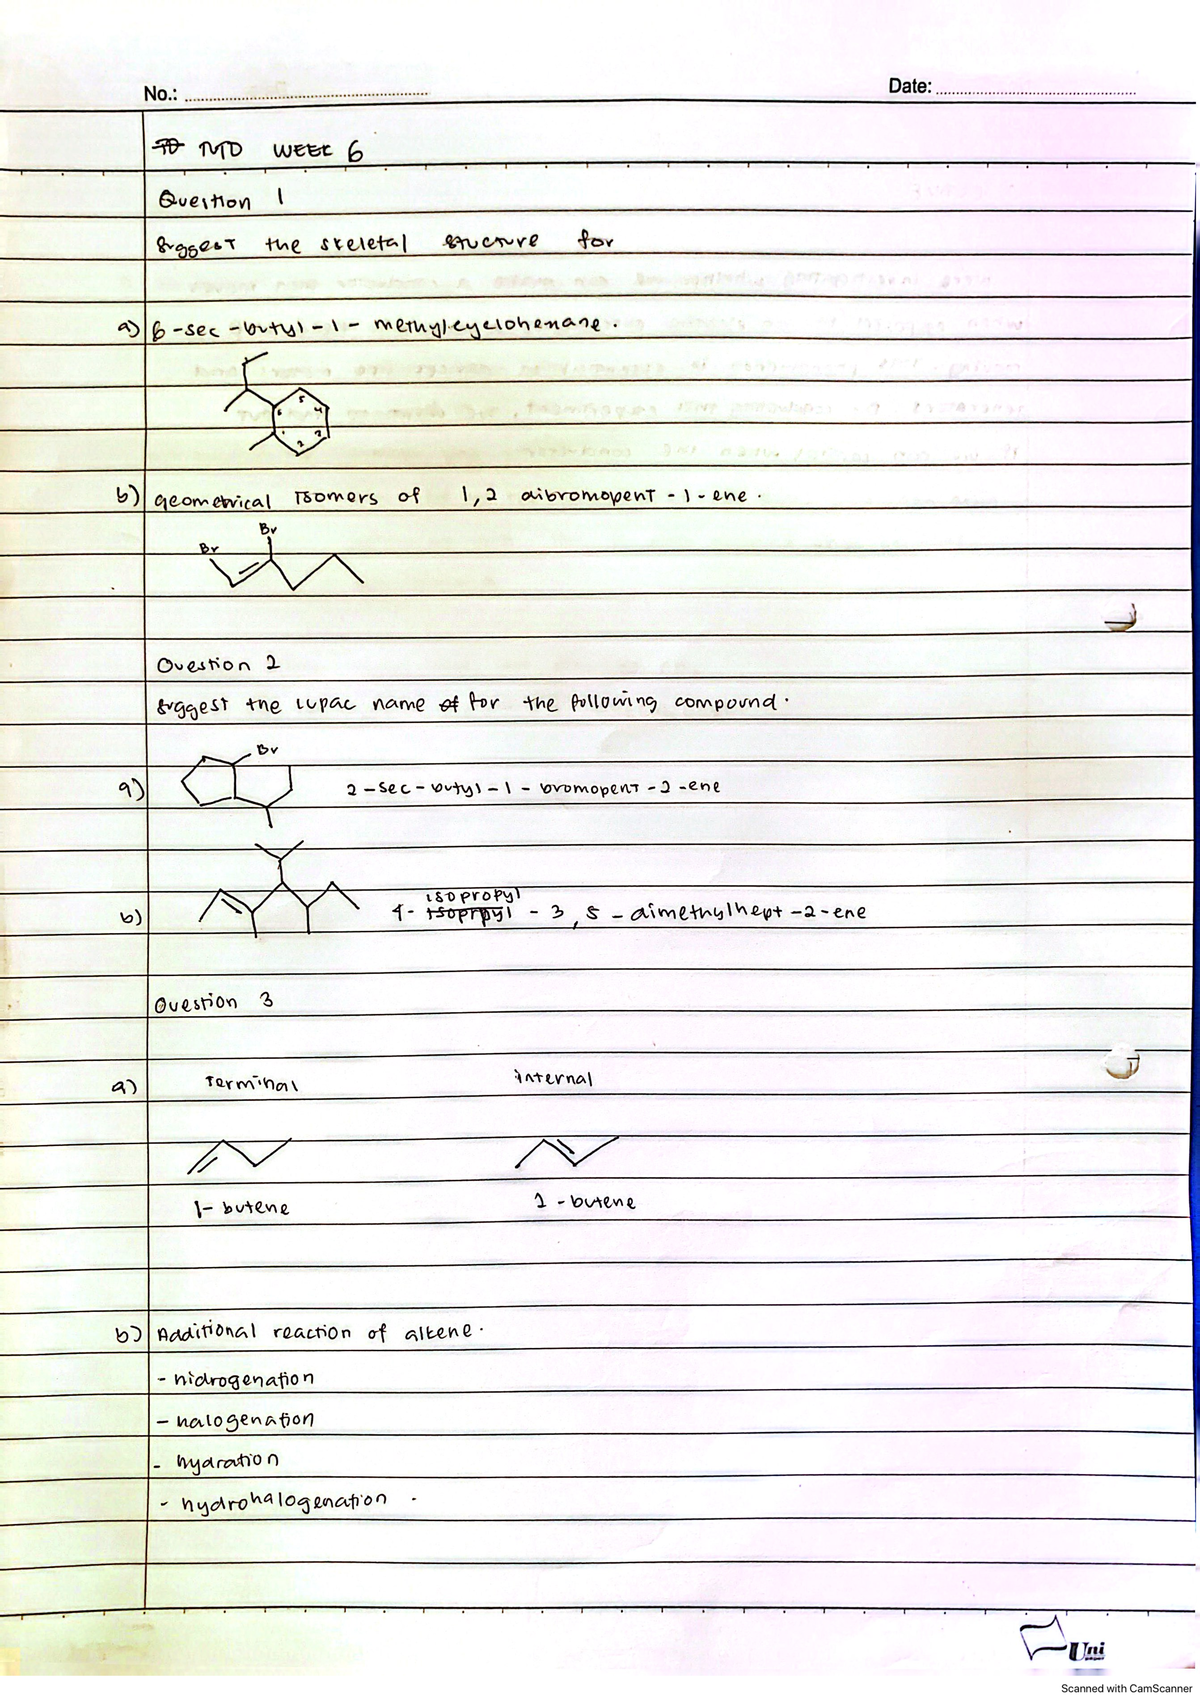 No.:
Date:
TUTO WEEK 6
Question 1
Suggest the skeletal stucture for
a) 6-sec-butyl-1-methylcyclohexane.
5
6 4
1 3
2
b) geometrical isomers of 1,2 dibromopent-1-ene.
Br
Br
Question 2
suggest the iupac name of for the following compound.
Br
a) 2-sec-butyl-1-bromopent-2-ene
isopropyl
b) 4- isoprpyl - 3, 5 - dimethylhept -2-ene
Question 3
a) Terminal internal
1- butene 2 - butene
b) Additional reaction of alkene.
- hidrogenation
- halogenation
- hydration
- hydrohalogenation.
Uni
Scanned with CamScanner